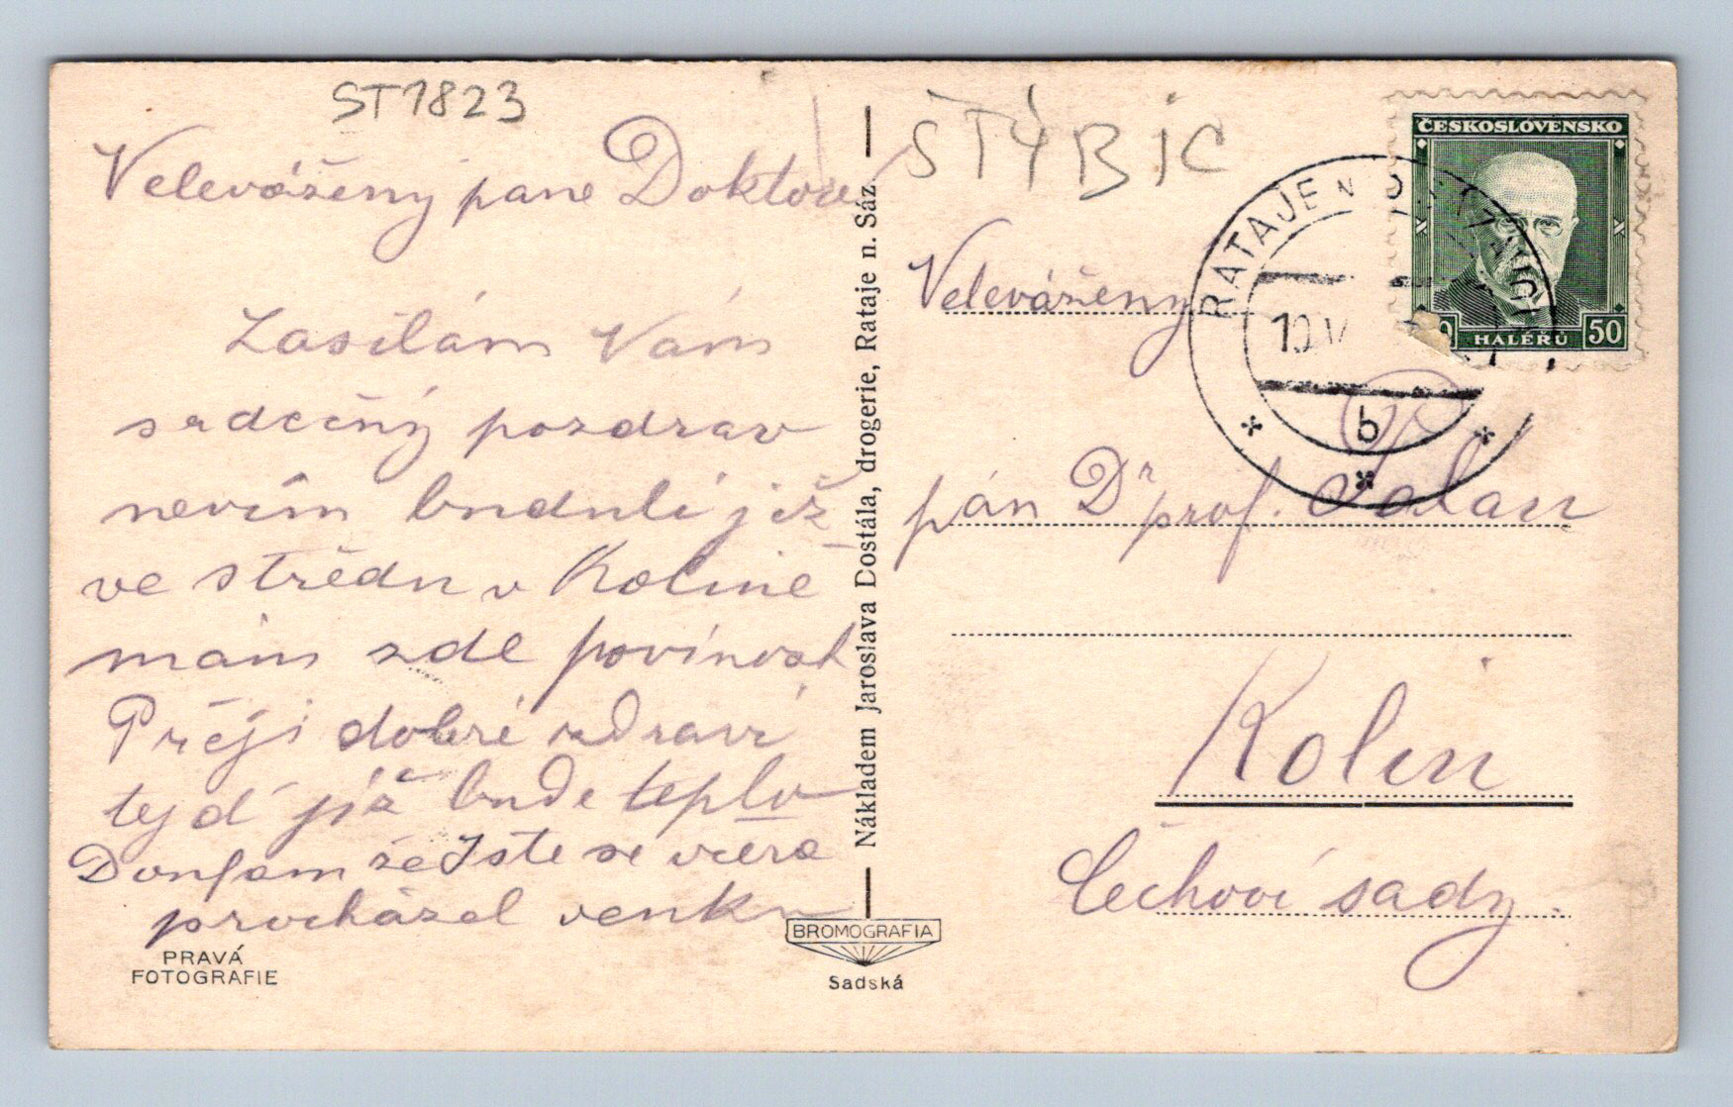 ST1823
Velevážený pane Doktore
Zasílám Vám
srdečný pozdrav
nevím buduli již
ve středu v Kolíně
mám zde povinost
Přeji dobré zdraví
tej d již bude teplo
Doufam že Jste se včera
procházel venku
PRAVÁ
FOTOGRAFIE
Nákladem Jaroslava Dostála, drogerie, Rataje n. Sáz.
BROMOGRAFIA
Sadská
ŠTÝBIC
ČESKOSLOVENSKO
50 HALÉŘŮ 50
RATAJE N. SÁZAVOU
10.V
b
Velevážený
pán Dr prof.
Kolín
Čechovi sady.